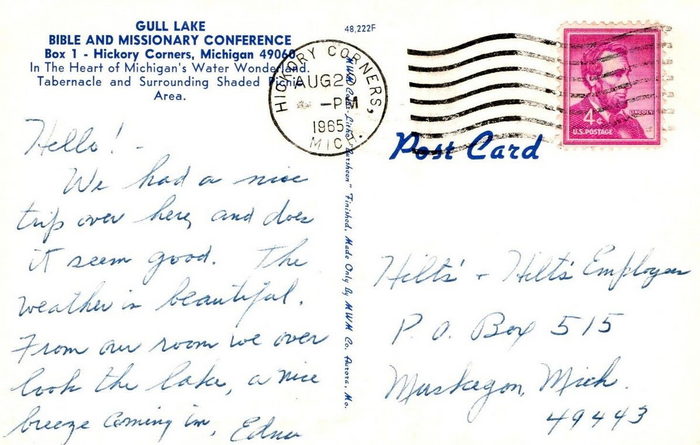 GULL LAKE
BIBLE AND MISSIONARY CONFERENCE
Box 1 - Hickory Corners, Michigan 49060
In The Heart of Michigan's Water Wonderland.
Tabernacle and Surrounding Shaded
Area.
48,222F
HICKORY CORNERS,
AUG 2
-PM
1965
MICH.
4¢
U.S. POSTAGE
Post Card
Finished, Made Only By MWM Co. Aurora, Mo.
Hello! -
We had a nice
trip over here, and does
it seem good. The
weather is beautiful.
From our room we over
look the lake, a nice
breeze coming in, Edna
Hilts' - Hilts Employees
P. O. Box 515
Muskegon, Mich.
49443